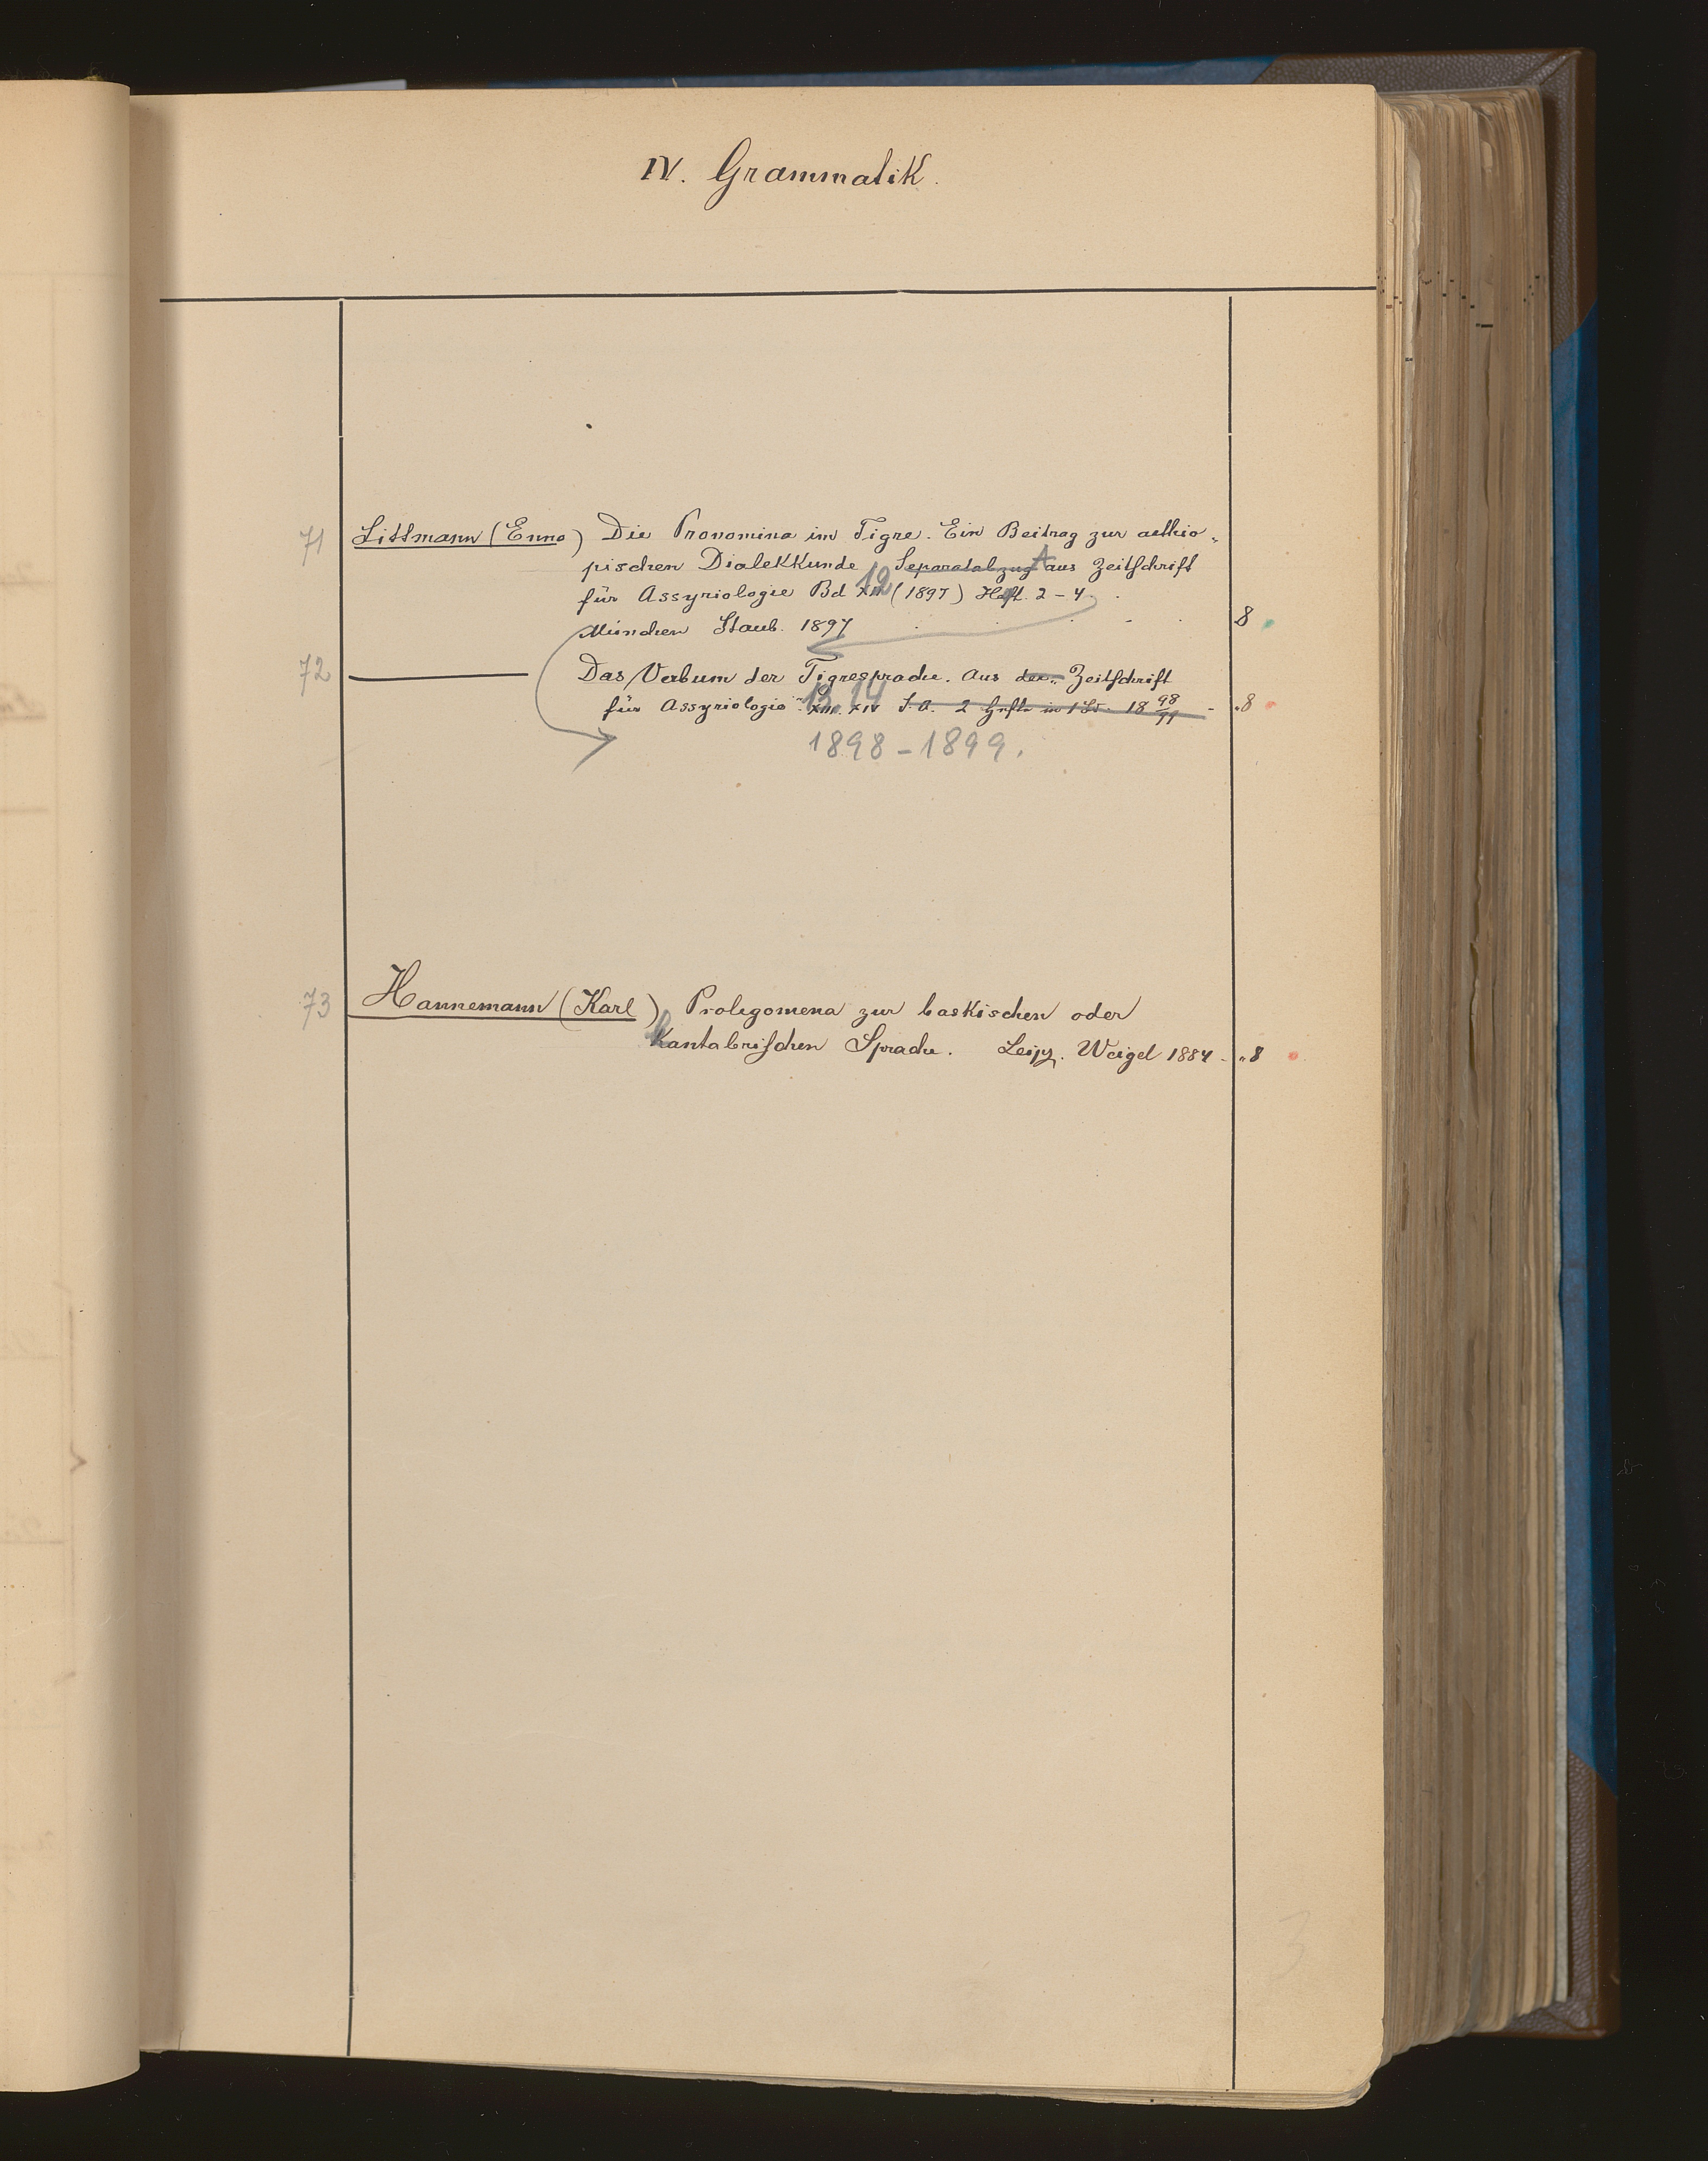 IV. Grammatik.
71 Littmann (Enno) Die Pronomina im Tigre. Ein Beitrag zur aethio-
pischen Dialekkunde Separatabzug A aus Zeitschrift
für Assyriologie Bd XII 12 (1897) Heft. 2-4.
München Staub. 1897 8
72 Das Verbum der Tigresprache. Aus der Zeitschrift
für Assyriologie XIII. XIV 13. 14 S.A. 2 Hefte in 1 Bd. 18 98/99 - "8
1898-1899.
73 Hannemann (Karl), Prolegomena zur baskischen oder
Kantabrischen Sprache. Leipz. Weigel 1884 - "8
3